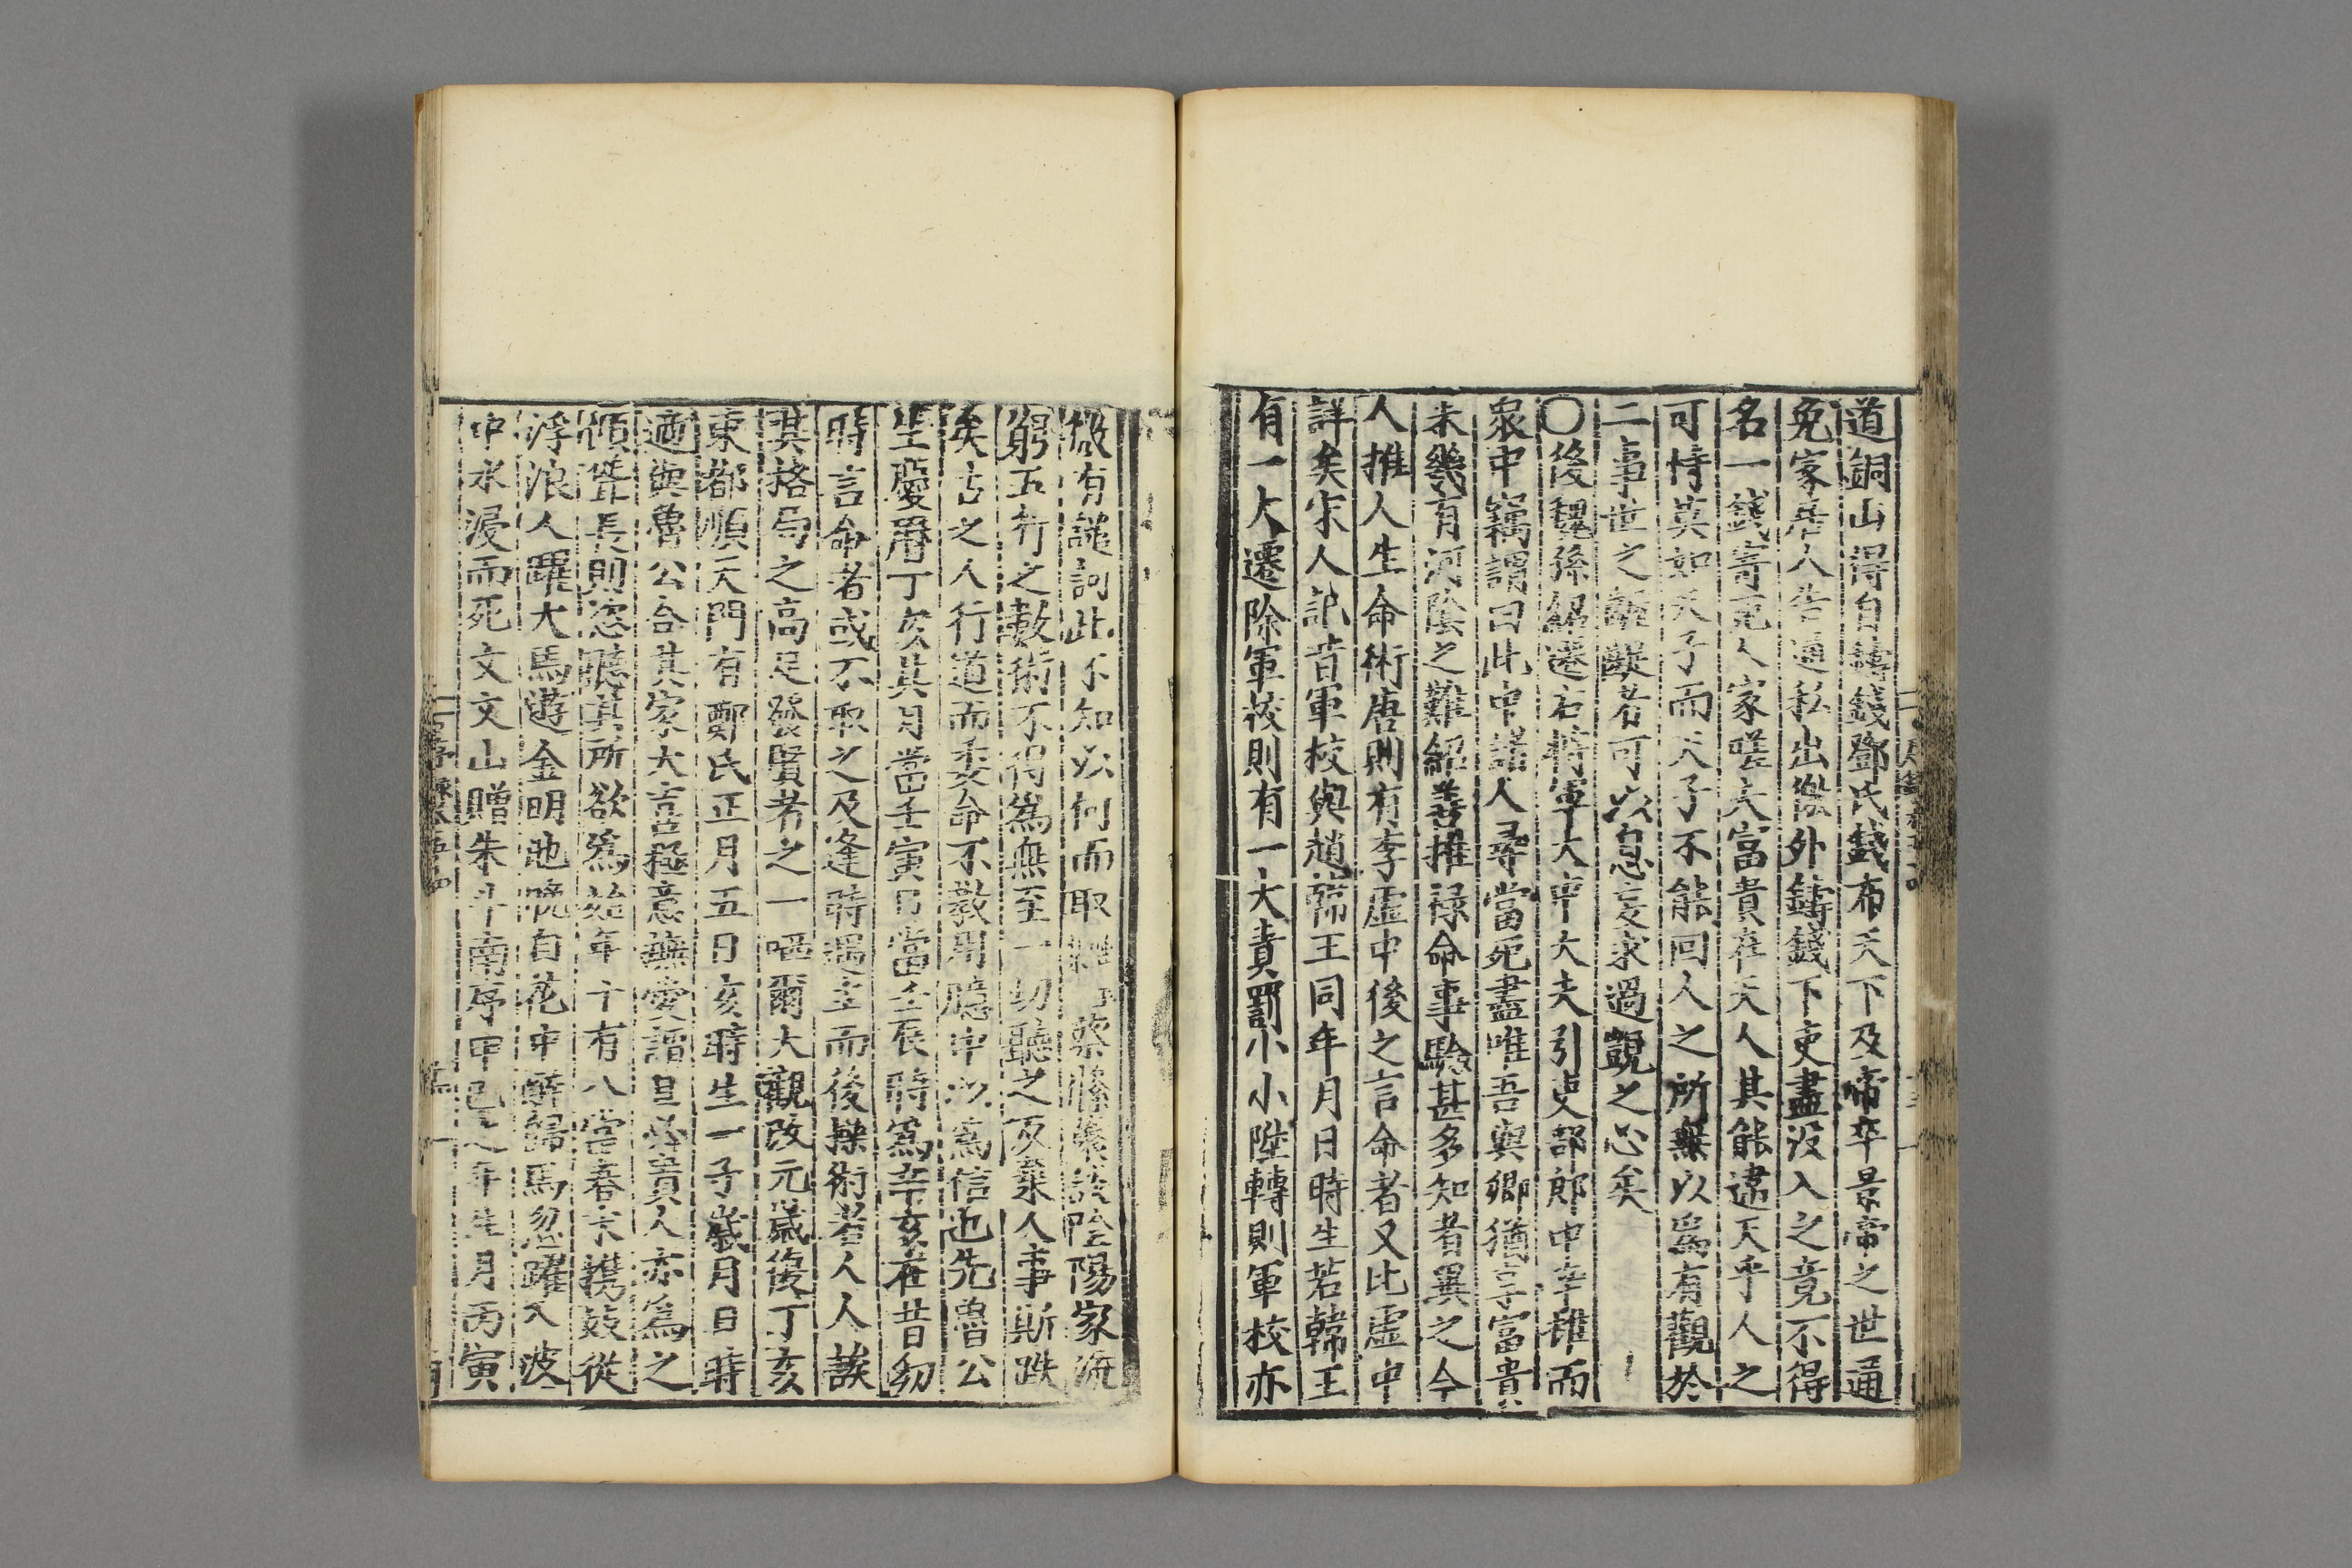 道銅山得自鑄錢鄧氏錢布天下及帝卒景帝之世通
免家居人告通私出徼外鑄錢下吏盡沒入之竟不得
名一錢寄死人家嗟夫富貴在天人其能逮天乎人之
可恃莫如天子而天子不能回人之所無以爲有觀於
二事世之者可以息妄求過覬之心矣
〇後魏孫紹遷右將軍大中大夫引吏部郎中辛雄而
衆中竊謂曰此中諸人尋當死盡唯吾與卿猶享富貴
未幾有河陰之難紹善推祿命事驗甚多知者異之今
人推人生命術唐則有李虛中後之言命者又比虛中
詳矣宋人記昔軍校與趙韓王同年月日時生若韓王
有一大遷除軍校則有一大責罰小小陞轉則軍校亦
微有譴訶此不知以何而取蔡絛叢談陰陽家流
窮五行之數術不得爲無至一切聽之反棄人事斯跌
矣古之人行道而委命不敎用臆中以爲信也先魯公
生慶曆丁亥其月當壬寅日當壬辰時爲辛亥在昔幼
時言命者或不取之及逢時遇主而後操術者人人談
其格局之高足發賢者之一哂爾大觀改元歲復丁亥
東都順天門有鄭氏正月五日亥時生一子歲月日時
適與魯公合其家大喜極意撫愛謂且必貴人亦爲之
傾聳長則恣聽其所欲爲始年十有八當春末擕妓從
浮浪人躍大馬遊金明池晚自苑中醉歸馬忽躍入波
中水浸而死文文山贈朱斗南序甲己之年生月丙寅